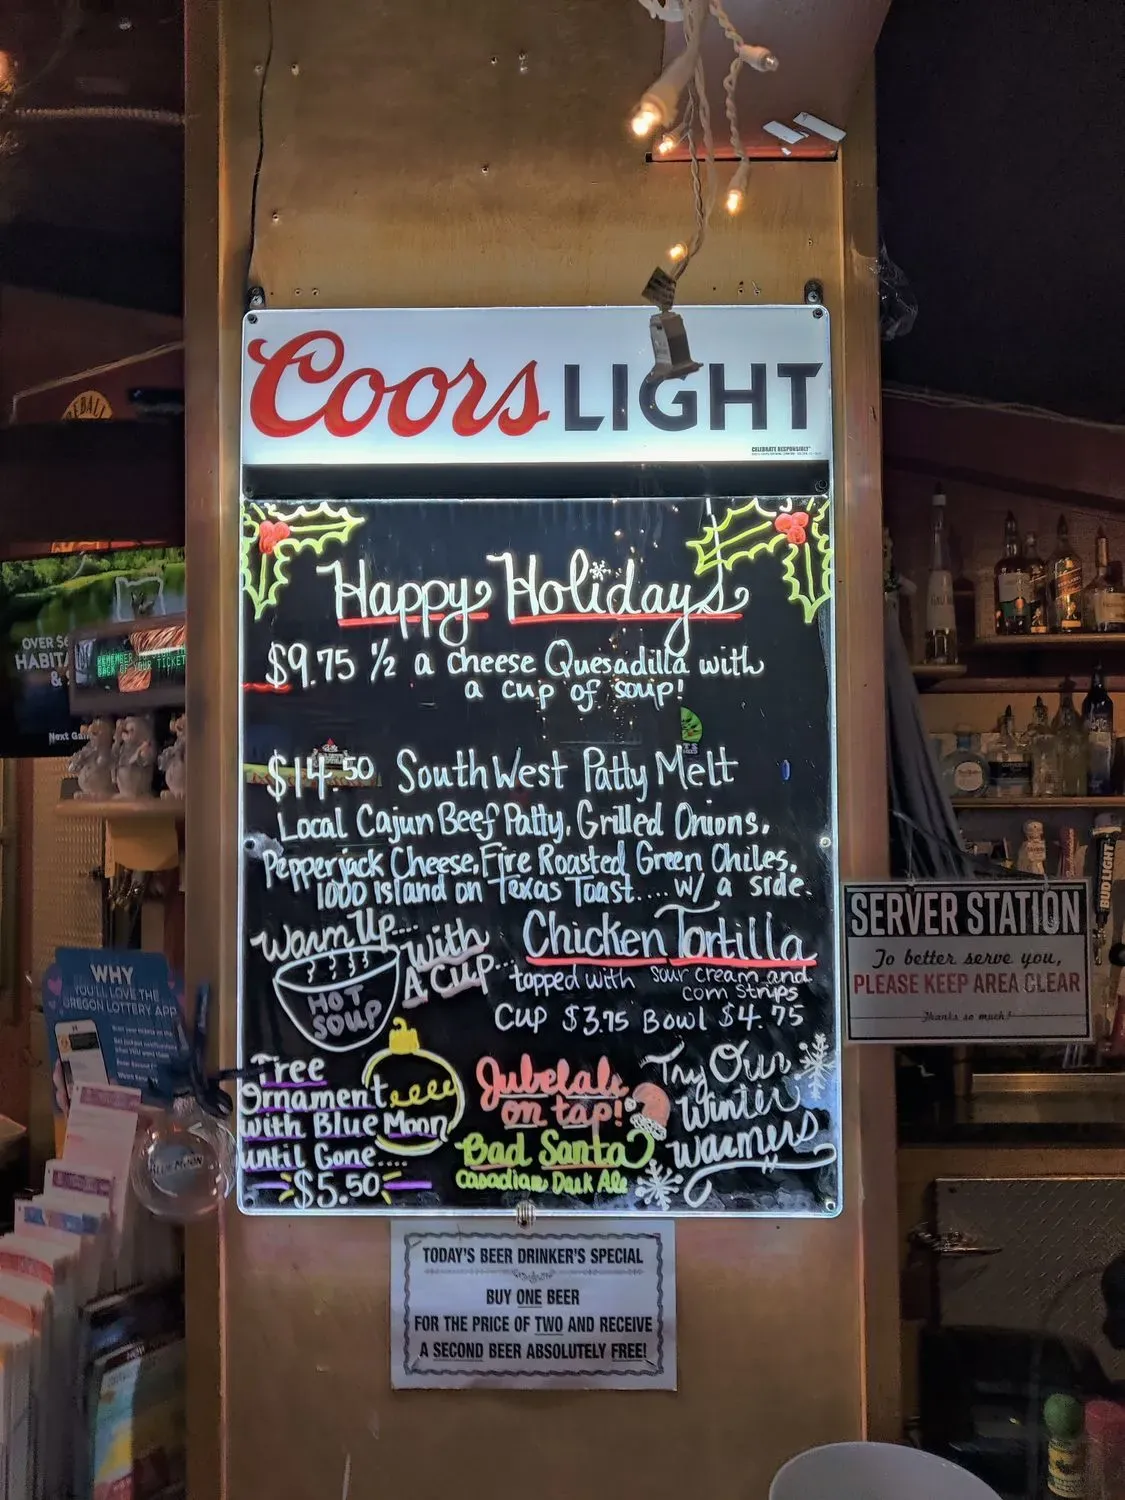 Coors LIGHT
CELEBRATE RESPONSIBLY
Happy Holidays
$9.75 1/2 a cheese Quesadilla with
a cup of soup!
$14.50 SouthWest Patty Melt
Local Cajun Beef Patty, Grilled Onions,
Pepperjack Cheese, Fire Roasted Green Chiles,
1000 Island on Texas Toast.... w/ a side.
Warm Up....
With
A Cup...
HOT
SOUP
Chicken Tortilla
topped with sour cream and
corn strips
Cup $3.75 Bowl $4.75
Free
Ornament
with Blue Moon
until Gone....
$5.50
Jubelale
on tap!
Bad Santa
Cascadian Dark Ale
Try Our
Winter
Warmers
TODAY'S BEER DRINKER'S SPECIAL
BUY ONE BEER
FOR THE PRICE OF TWO AND RECEIVE
A SECOND BEER ABSOLUTELY FREE!
SERVER STATION
To better serve you,
PLEASE KEEP AREA CLEAR
Thanks so much!
WHY
YOU'LL LOVE THE
OREGON LOTTERY APP
BLUE MOON
OVER
HABIT
&
REMEMBER
BACK OF YOUR TICKET
Next
BUD LIGHT